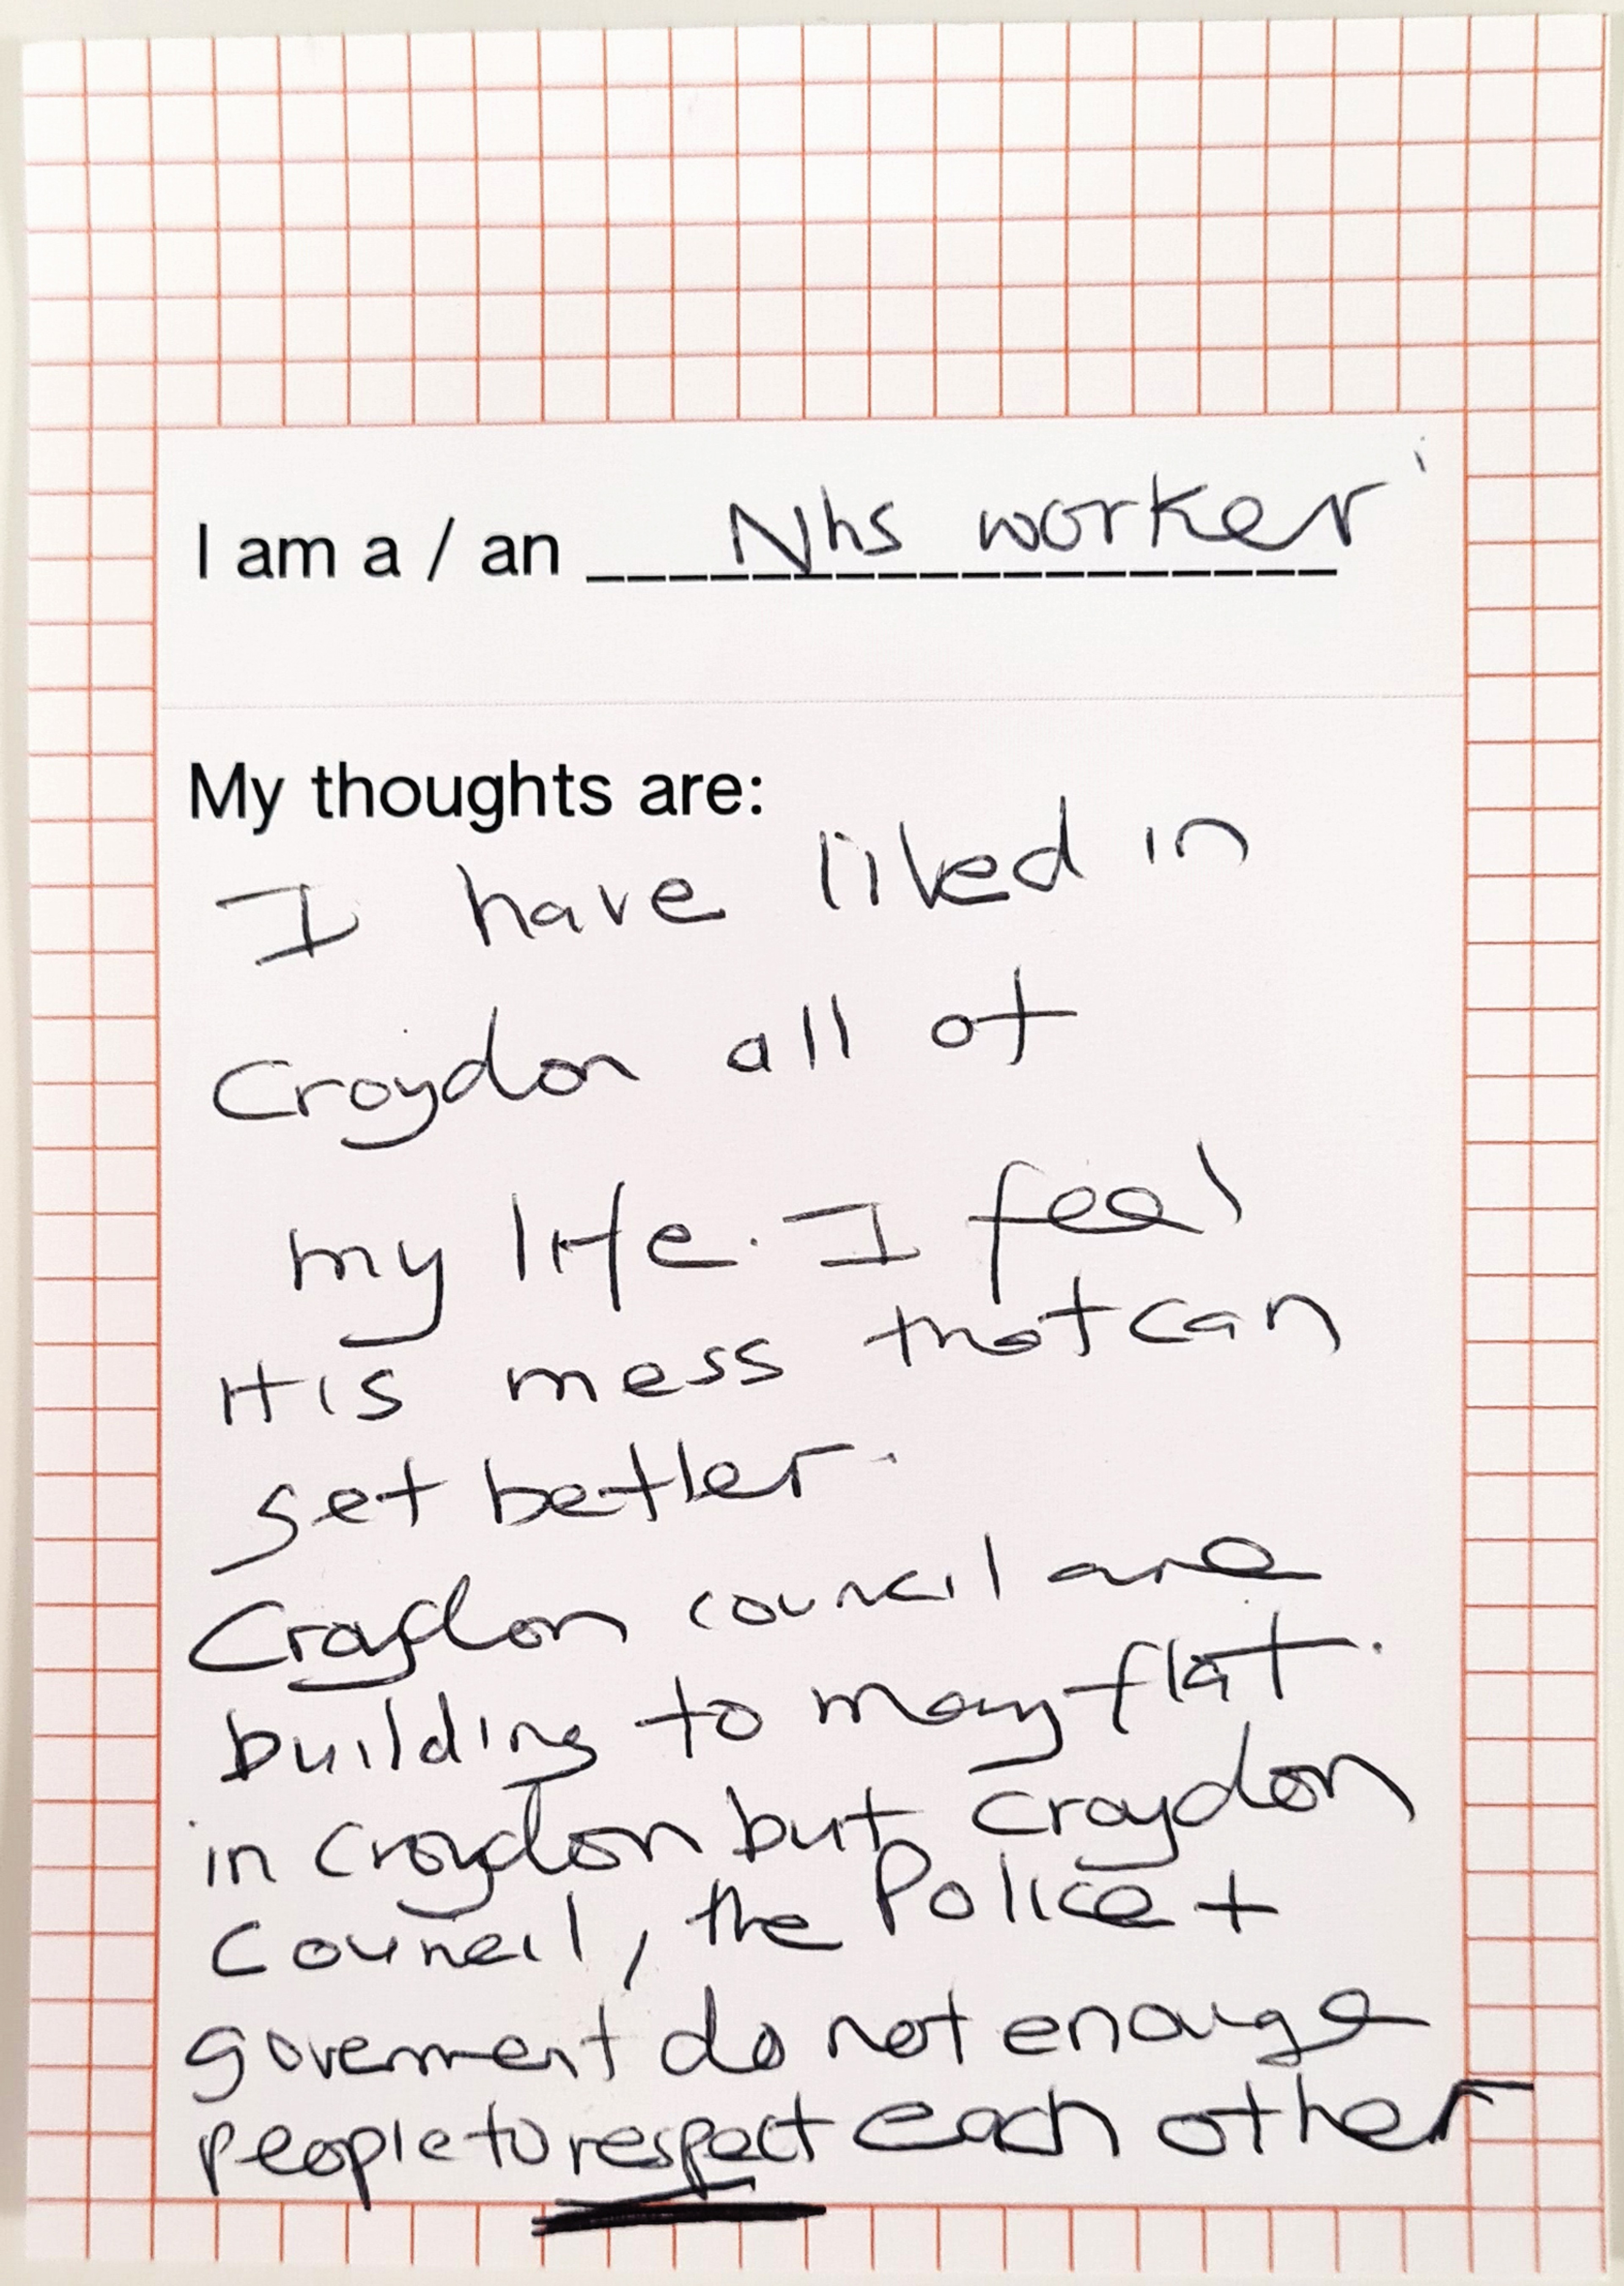 I am a / an Nhs worker
My thoughts are:
I have liked in
Croydon all of
my life. I feel
it is mess that can
get better.
Croydon council are
building to many flat.
in croydon but croydon
council, the Police +
goverment do not enouge
people to respect each other